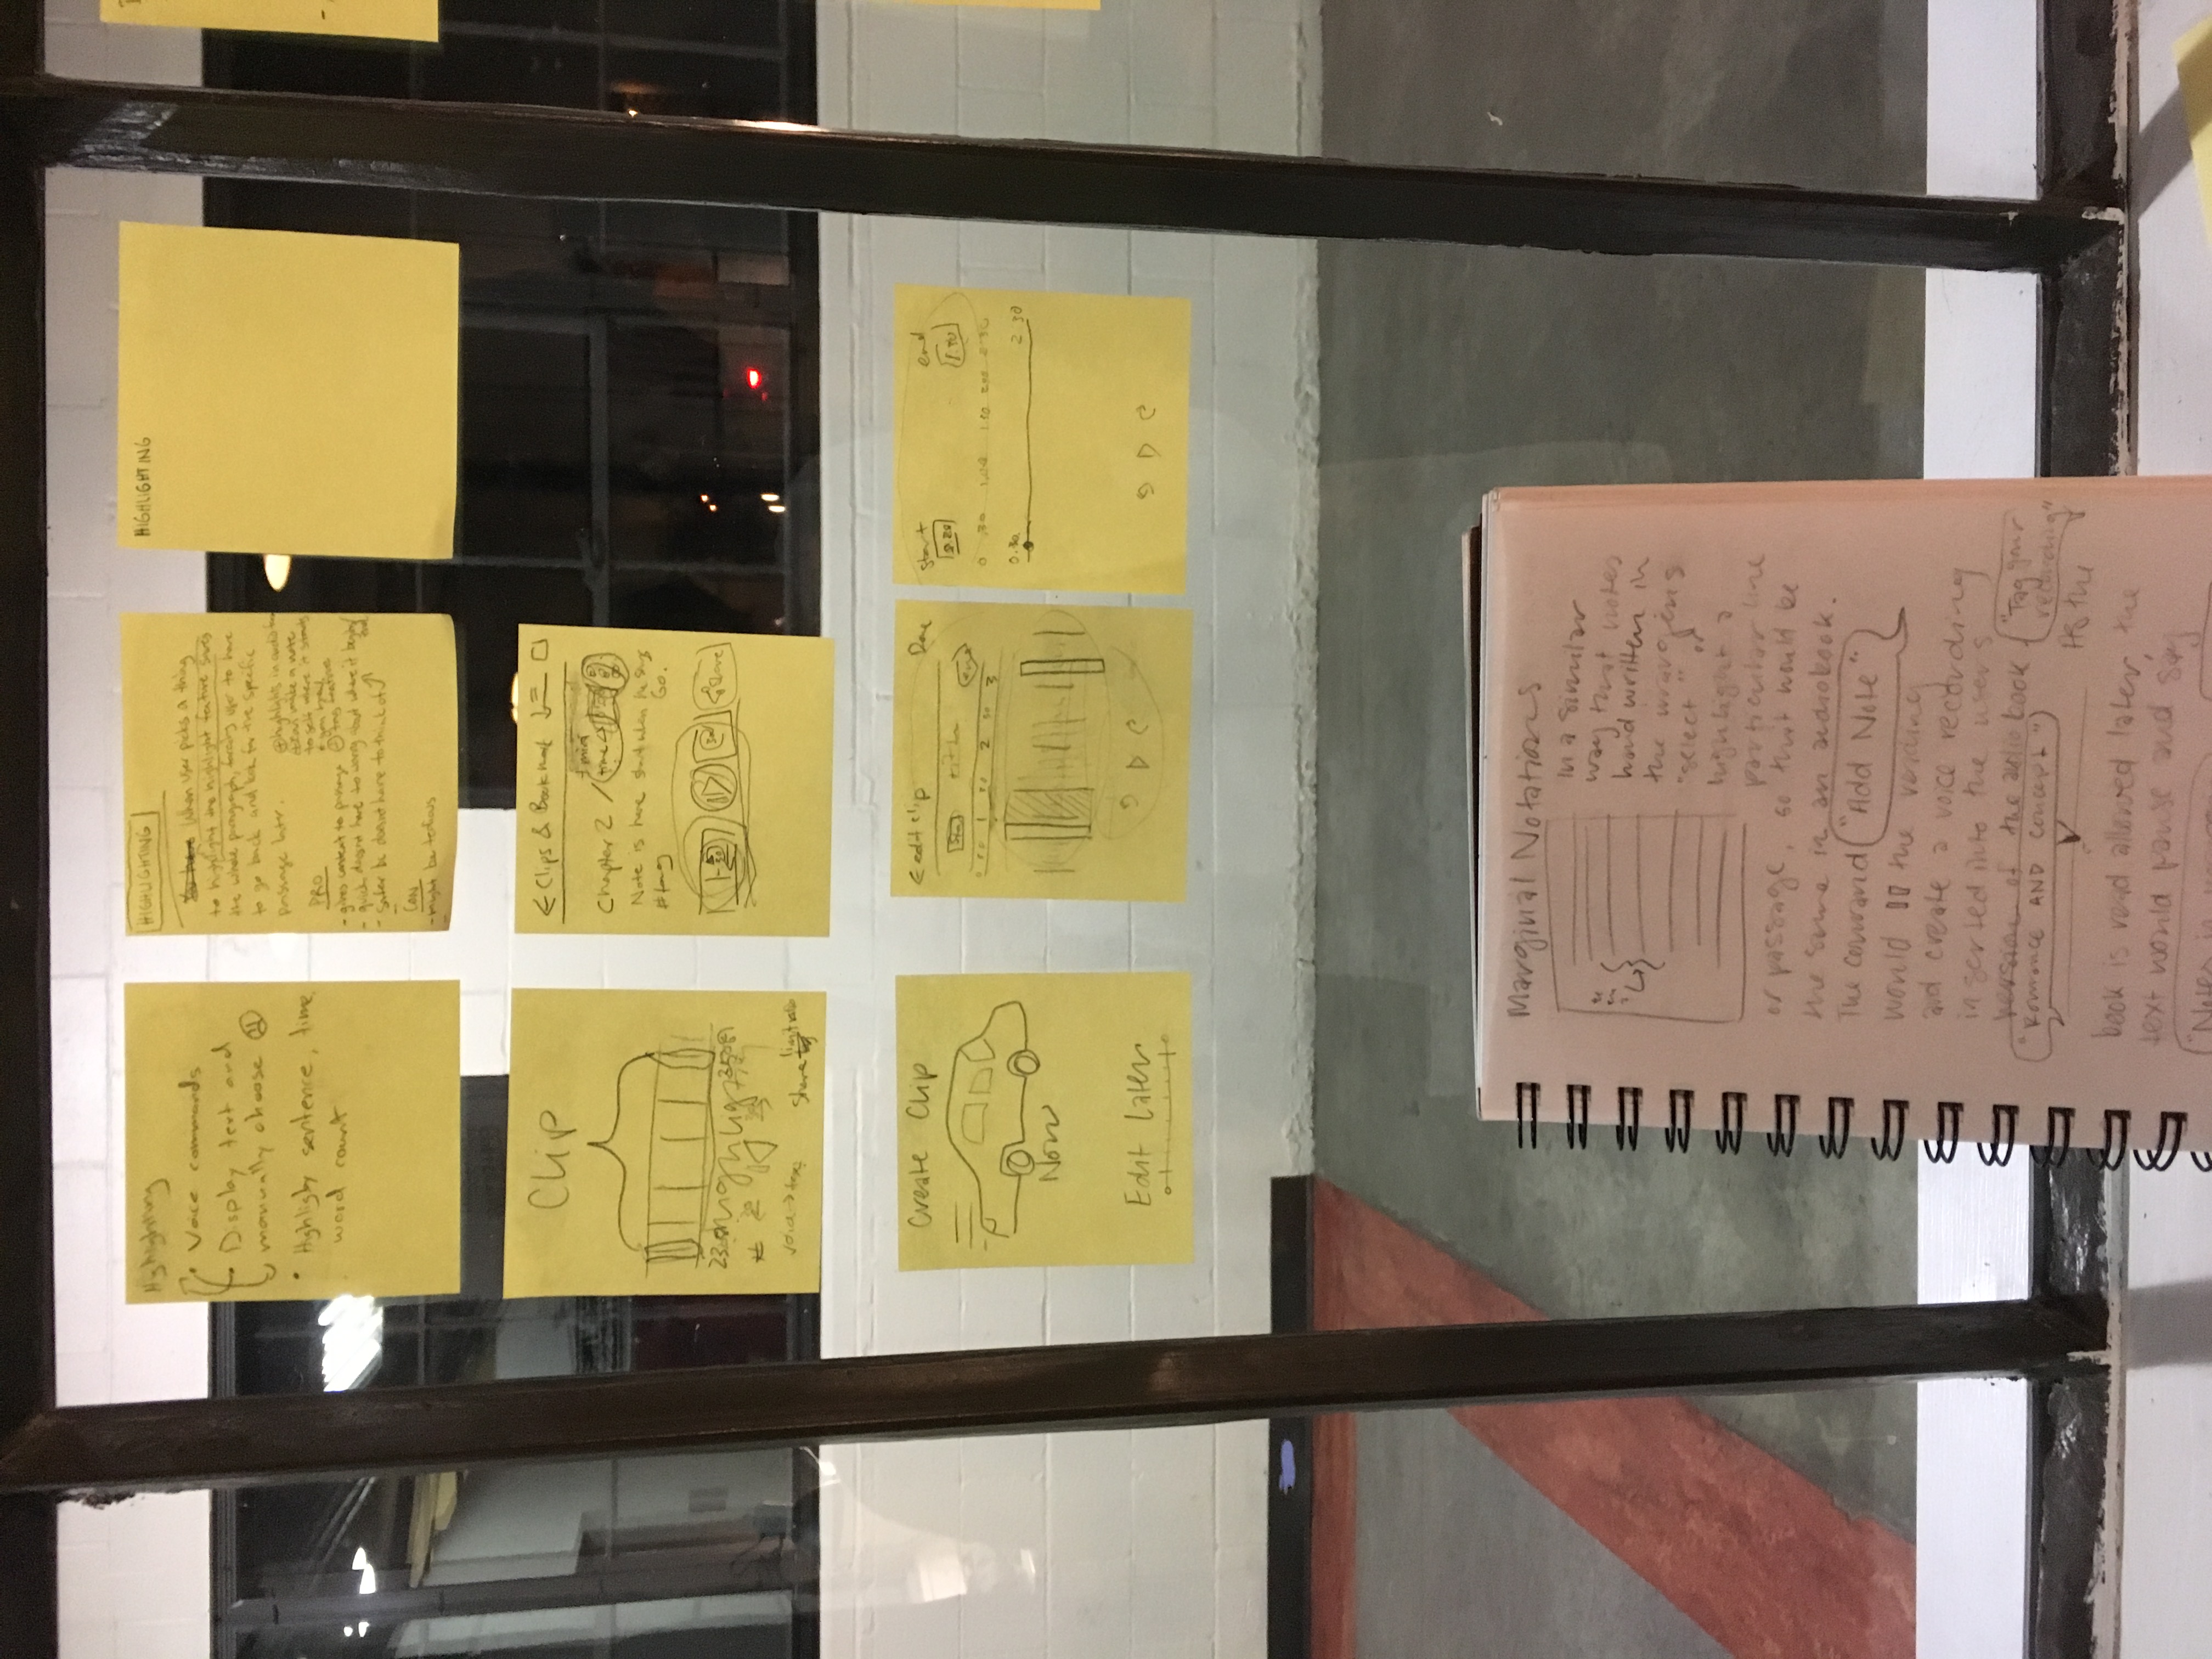 Highlighting
• Voice commands
• Display text and
manually choose
• Highlight by sentence, time,
word count
HIGHLIGHTING
When user picks a thing
to highlight the highlight feature saves
the whole paragraph, forcing user to have
to go back and look for the specific
passage later.
highlights in audio
can make a note
to self where it starts
this feature
PRO
- gives context to passage
- quick doesnt have to worry about where it begins/
end
- safer bc doesnt have to think of
CON
- might be tedious
HIGHLIGHTING
Clip
voice → text
share
← Clips & Bookmark
Chapter 2 /
time
Note is here start when he says
#tag
Go.
-30
share
Create Clip
Now
Edit Later
← edit clip
Done
title
1
2
3
start
end
0
.30
2.30
Marginal Notations
In a simular
way that notes
hand written in
the margens
"select" or
highlight a
particular line
or passage, so that would be
the same in an audiobook.
The command "Add Note"
would the reading
and create a voice recording
inserted into the users
version of the audio book
"Tag your
recording"
"Romance AND Concept"
As the
book is read allowed later, the
text would pause and say
"Notes in